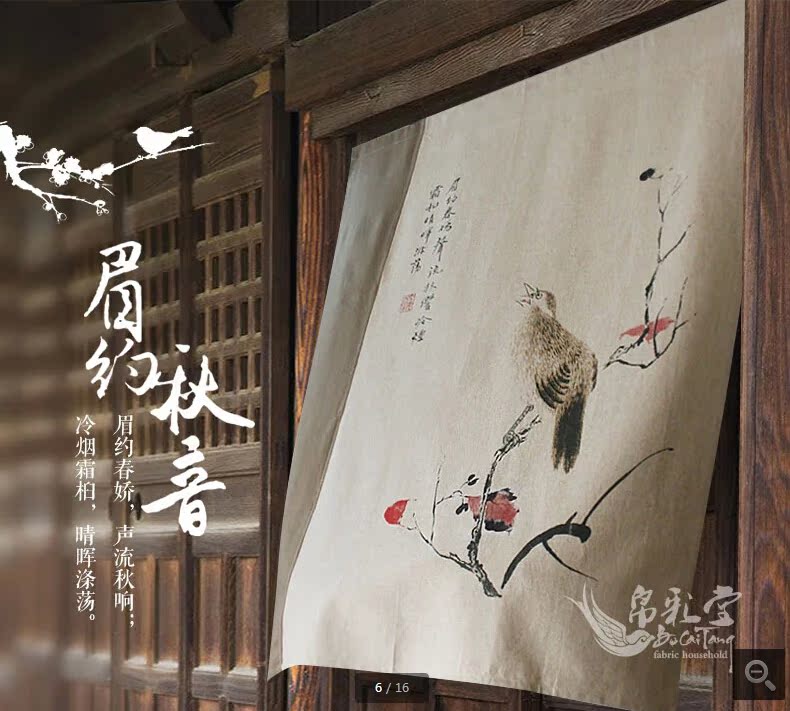 眉约秋音
眉约春娇，声流秋响；
冷烟霜柏，晴晖涤荡。
帛彩堂
BoCaiTang
fabric household
6 / 16